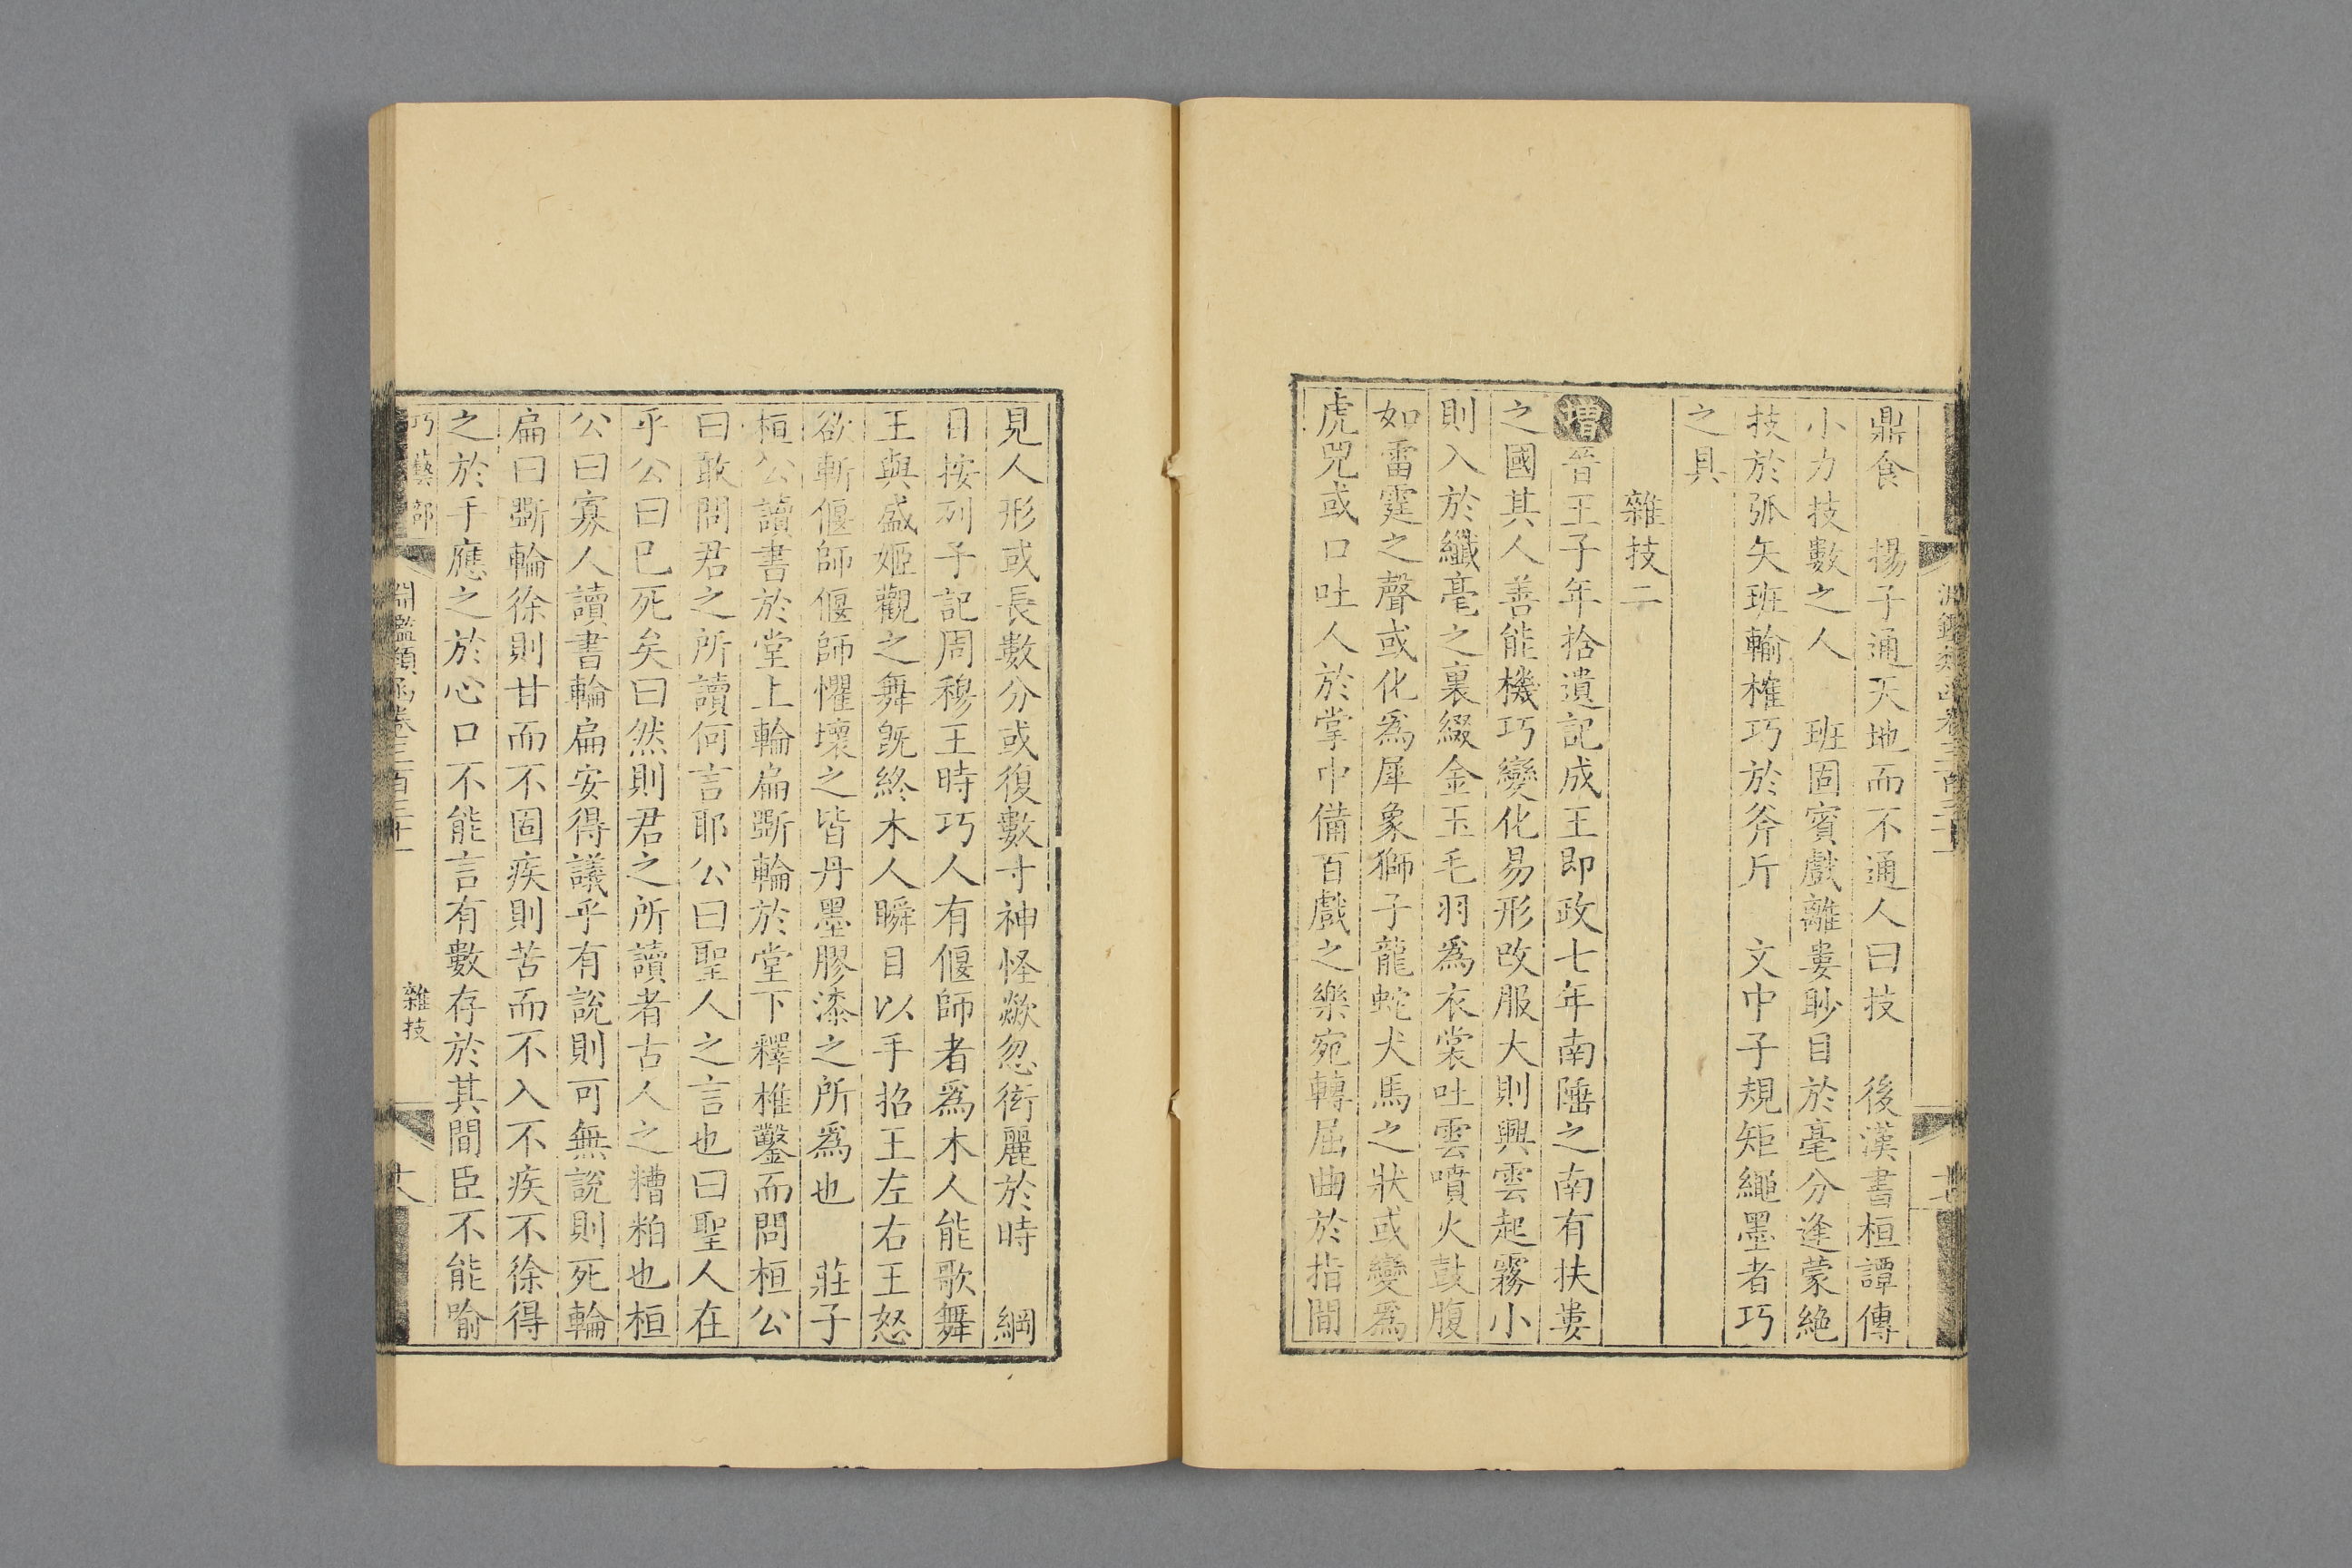 鼎食　揚子通天地而不通人曰技　後漢書桓譚傳
小力技數之人　班固賓戲離婁眇目於毫分逢蒙絶
技於弧矢班輸榷巧於斧斤　文中子規矩繩墨者巧
之具
雜技二
增晉王子年拾遺記成王即政七年南陲之南有扶婁
之國其人善能機巧變化易形改服大則興雲起霧小
則入於纖毫之裏綴金玉毛羽爲衣裳吐雲噴火鼓腹
如雷霆之聲或化爲犀象獅子龍蛇犬馬之狀或變爲
虎兕或口吐人於掌中備百戲之樂宛轉屈曲於指間
見人形或長數分或復數寸神怪歘忽衒麗於時　綱
目按列子記周穆王時巧人有偃師者爲木人能歌舞
王與盛姬觀之舞既終木人瞬目以手招王左右王怒
欲斬偃師偃師懼壞之皆丹墨膠漆之所爲也　莊子
桓公讀書於堂上輪扁斲輪於堂下釋椎鑿而問桓公
曰敢問君之所讀何言耶公曰聖人之言也曰聖人在
乎公曰已死矣曰然則君之所讀者古人之糟粕也桓
公曰寡人讀書輪扁安得議乎有說則可無說則死輪
扁曰斲輪徐則甘而不固疾則苦而不入不疾不徐得
之於手應之於心口不能言有數存於其間臣不能喻
巧藝部
淵鑑類函卷三百三十一
雜技